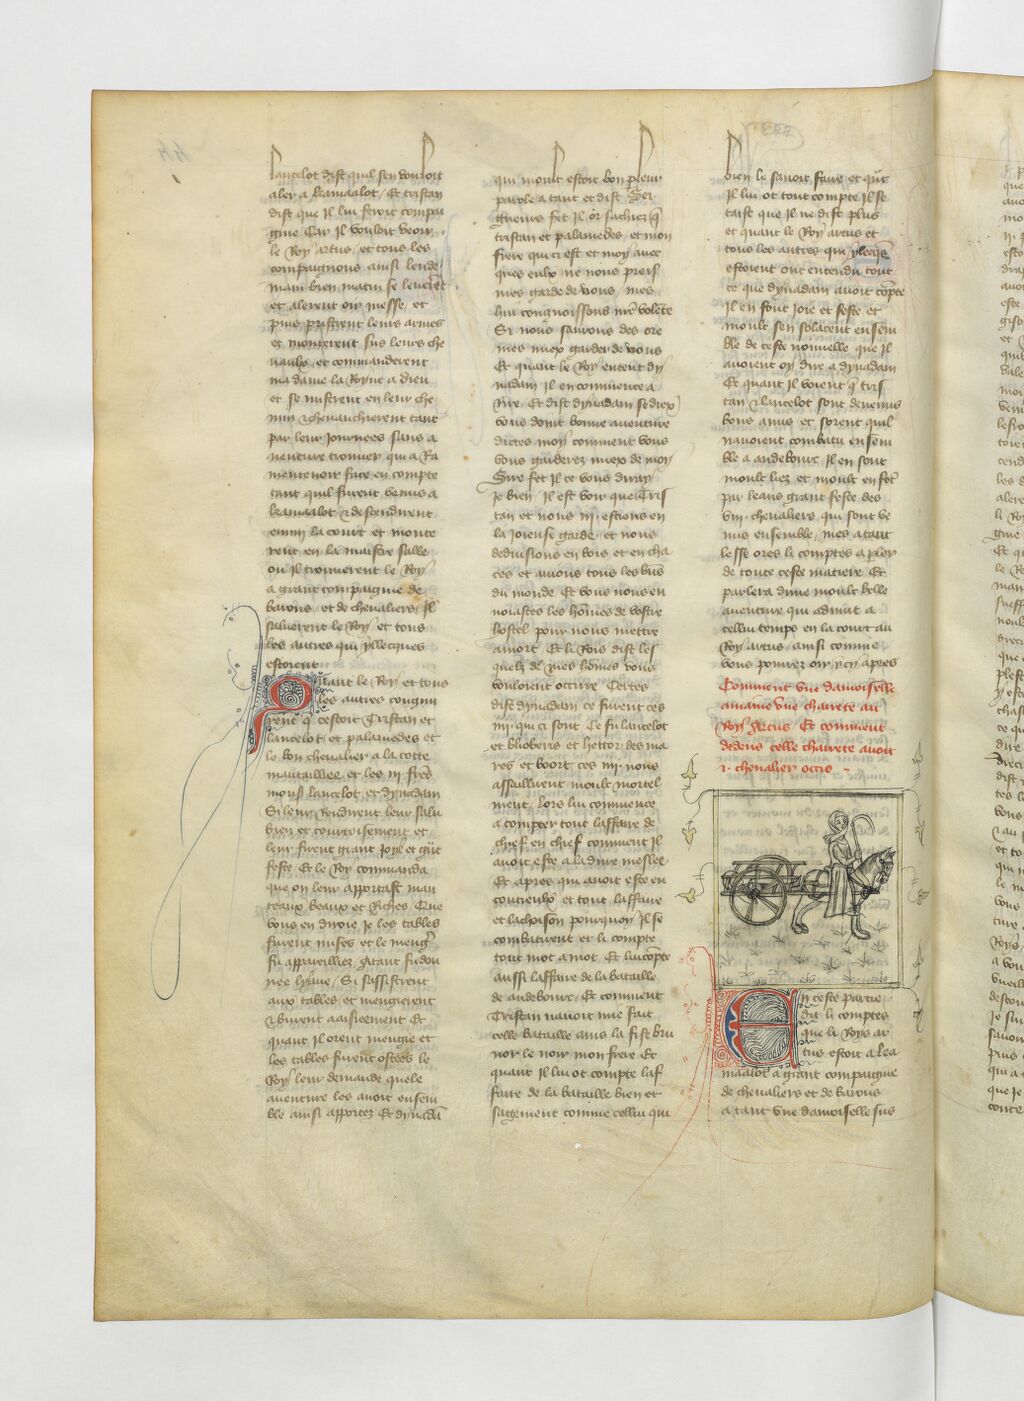 Lancelot dist quil sen vouloit
aler a kamaalot / Et tristan
dist que Il lui feroit compai
gnie Car Il vouloit veoir
le Roy artus / et tous les
compaignons ainsi lende
main bien matin se leuerent
et alerent oir messe / et
puis pristrent leurs armes
et monterent sus leurs che
uaulx et commanderent
ma dame la Royne a dieu
et se mistrent en leur che
min et cheuaucherent tant
par leur Iournees sans a
uenture trouuer qui a Ra
menteuoir face en compte
tant quil furent venus a
kamaalot et descendirent
emmi la court et monte
rent en la maistre salle
ou Il trouuerent le Roy
a grant compaignie de
barons / et de cheualiers / Il
saluerent le Roy / et tous
les autres qui yllecques
estoient
Quant le Roy et tous
les autres congnu
rent q cestoit Tristan et
lancelot / et palamedes et
le bon cheualier a la cotte
mautailliee et les iij freres
monss lancelot et dynadam
Si leur Rendirent leur salu
bien et courtoisement et
leur firent grant Joye et gnt
feste Et le Roy commanda
que on leur apportast man
teaux beaux et Riches Que
vous en diroie Je les tables
furent mises et le mengier
fu appareilliez
aux tables / et mengierent
et burent aaisieement Et
quant Il orent mengie et
les tables furent ostees le
Roy leur demande quele
auenture les auoit ensem
ble ainsi apportez Et dynadan
qui moult estoit bon pleur
parole a tant et dist Sei
gneurs fet Il or sachiez q
tristan et palamedes et mon
frere qui ci est et moy / auec
ques eulx ne nous preis
mes garde de vous / mes
hui congnoissons vre volete
Si nous saurons des ore
mes miex garder de vous
Et quant le Roy entent dy
nadam Il en commence a
Rire Et dist dynadam se diex
vous doint bonne auenture
dictes moy comment vous
vous garderez miex de moy
Sire fet Il ce vous diray
Je bien / Il est voir que Tris
tan et nous iij estions en
la Joieuse garde et nous
deduisions en bois et en cha
ces et auions tous les biens
du monde Et vous nous en
uoiastes les homes de vostre
hostel pour nous mettre
amort Et li Rois dist les
quelz de mes homes vous
vouloient occirre Certes
dist dynadam ce furent ces
iiij qui ci sont Ce fu lancelot
et bliobens et hettor des ma
res et boort ces iiij nous
assaillirent moult mortel
ment Lors lui commence
a compter tout laffaire de
chief en chief comment Il
auoit este a la dure meslee
Et apres qui auoit este en
contreulx et tout laffaire
et lachoison pourquoy Il se
combatirent et li compte
tout mot a mot Et lui copte
aussi laffaire de la bataille
de andebourc / Et comment
Tristan nauoit mie fait
celle bataille ains la fist bru
nor le noir mon frere Et
quant Il lui ot compte laf
faire de la bataille bien et
sagement comme cellui qui
bien le sauoit faire et qnt
Il lui ot tout compte Il se
taist que Il ne dist plus
et quant le Roy artus et
tous les autres qui yleques
estoient ont entendu tout
ce que dynadam auoit copte
Il en font Ioie et feste et
moult sen solacent ensem
ble de ceste nouuelle que Il
auoient oy dire a dynadam
Et quant Il voient q tris
tan et lancelot sont deuenus
bons amis et sorent quil
nauoient combatu ensem
ble a andebourc Il en sont
moult liez et moult en fet
par leans grant feste des
viij cheualiers qui sont ve
nus ensemble / mes a tant
lesse ores li comptes a pler
de toute ceste matiere Et
parlera dune moult belle
auenture qui aduint a
cellui temps en la court au
Roy artus / ainsi comme
vous pourrez oir y cy apres
Comment vne damoiselle
amaine vne charete au
Roy Artus / Et comment
dedens celle charrete auoit
i cheualier occis
En ceste partie
dit li comptes
que li Roys ar
tus estoit a kea
maalot a grant compaignie
de cheualiers et de barons
a tant vne damoiselle sus